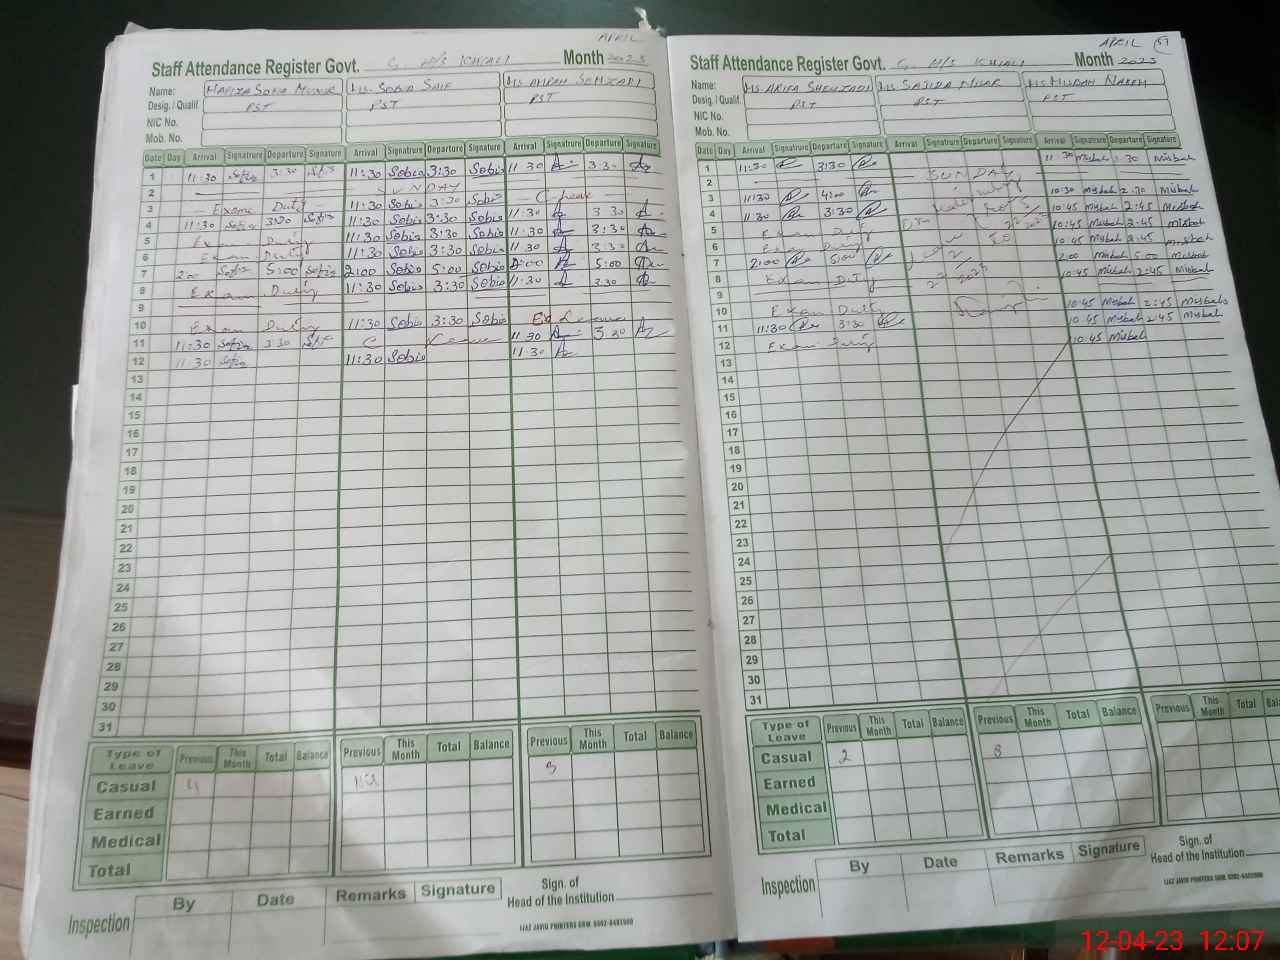 APRIL
Staff Attendance Register Govt. G H/S KHIALI Month 2023
Name: HAFIZA SOBIA MUNIR Ms. SOBIA SAIF
Desig. / Qualif. PST PST PST
NIC No.
Mob. No.
Date Day Arrival Signature Departure Signature Arrival Signature Departure Signature Arrival Signature Departure Signature
1 11:30 3:30 11:30 Sobia 3:30 Sobia 11:30 3:30
2 SUNDAY
3 Exame Duty 11:30 Sobia 3:30 Sobia C leave
4 11:30 3:30 11:30 Sobia 3:30 Sobia 11:30 3:30
5 Exam Duty 11:30 Sobia 3:30 Sobia 11:30 3:30
6 Exam Duty 11:30 Sobia 3:30 Sobia 11:30 3:30
7 2:00 5:00 2:00 Sobia 5:00 Sobia 2:00 5:00
8 Exam Duty 11:30 Sobia 3:30 Sobia 11:30 3:30
9
10 Exam Duty 11:30 Sobia 3:30 Sobia
11 11:30 3:30 C Leave 11:30 3:30
12 11:30 11:30 Sobia 11:30
13
14
15
16
17
18
19
20
21
22
23
24
25
26
27
28
29
30
31
Type of Leave Previous This Month Total Balance Previous This Month Total Balance Previous This Month Total Balance
Casual 4 Nil 3
Earned
Medical
Total
Inspection By Date Remarks Signature Sign. of Head of the Institution
IJAZ JAVID PRINTERS GRW.
APRIL 57
Staff Attendance Register Govt. G H/S KHIALI Month 2023
Name: Ms. ARIFA SHEHZADI Ms. SAJIDA NISAR
Desig. / Qualif. PST PST PST
NIC No.
Mob. No.
Date Day Arrival Signature Departure Signature Arrival Signature Departure Signature Arrival Signature Departure Signature
1 11:30 3:30 11:30 Misbah 3:30 Misbah
2 SUNDAY
3 11:30 4:00 10:30 Misbah 2:30 Misbah
4 11:30 3:30 10:45 Misbah 2:45 Misbah
5 Exam Duty 10:45 Misbah 2:45 Misbah
6 Exam Duty 10:45 Misbah 2:45 Misbah
7 2:00 5:00 2:00 Misbah 5:00 Misbah
8 Exam Duty 10:45 Misbah 2:45 Misbah
9
10 Exam Duty 10:45 Misbah 2:45 Misbah
11 11:30 3:30 10:45 Misbah 2:45 Misbah
12 Exam Duty 10:45 Misbah
13
14
15
16
17
18
19
20
21
22
23
24
25
26
27
28
29
30
31
Type of Leave Previous This Month Total Balance Previous This Month Total Balance Previous This Month Total
Casual 2 8
Earned
Medical
Total
Inspection By Date Remarks Signature Sign. of Head of the Institution
IJAZ JAVID PRINTERS GRW.
12-04-23 12:07